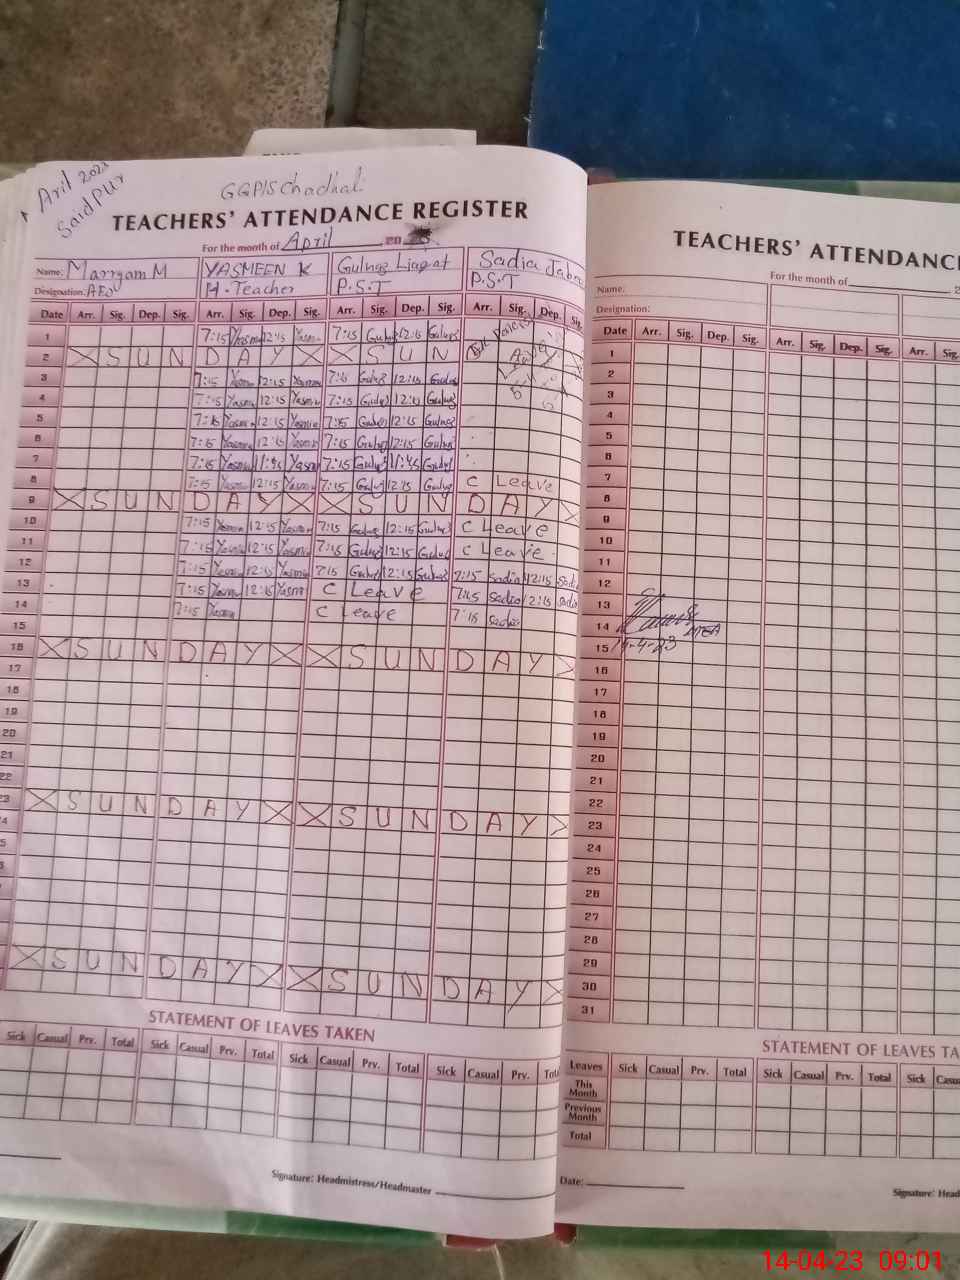 April 2023
Saidpur
GGP/S Chadhal
TEACHERS' ATTENDANCE REGISTER
For the month of April 20
Name: Marryam M YASMEEN K Gulnaz Liaqat Sadia
Designation: AEO H. Teacher P.S.T P.S.T
Date Arr. Sig. Dep. Sig. Arr. Sig. Dep. Sig. Arr. Sig. Dep. Sig. Arr. Sig. Dep. Sig.
1 7:15 Yasmn 12:15 Yasm 7:15 Gulnaz 12:15 Gulnaz
2 SUNDAY SUN
3 7:15 Yasmn 12:15 Yasmn 7:15 Gulnaz 12:15 Gulnaz
4 7:15 Yasmn 12:15 Yasmn 7:15 Gulnaz 12:15 Gulnaz
5 7:15 Yasmn 12:15 Yasmn 7:15 Gulnaz 12:15 Gulnaz
6 7:15 Yasmn 12:15 Yasmn 7:15 Gulnaz 12:15 Gulnaz
7 7:15 Yasmn 11:45 Yasmn 7:15 Gulnaz 11:45 Gulnaz
8 7:15 Yasmn 12:15 Yasmn 7:15 Gulnaz 12:15 Gulnaz C Leave
9 SUNDAY SUNDAY
10 7:15 Yasmn 12:15 Yasmn 7:15 Gulnaz 12:15 Gulnaz C Leave
11 7:15 Yasmn 12:15 Yasmn 7:15 Gulnaz 12:15 Gulnaz C Leave
12 7:15 Yasmn 12:15 Yasmn 7:15 Gulnaz 12:15 Gulnaz 7:15 Sadia 12:15 Sadia
13 7:15 Yasmn 12:15 Yasmn C Leave 7:15 Sadia 12:15 Sadia
14 7:15 Yasmn C Leave 7:15 Sadia
15
16 SUNDAY SUNDAY
17
18
19
20
21
22
23 SUNDAY SUNDAY
SUNDAY SUNDAY
STATEMENT OF LEAVES TAKEN
Sick Casual Prv. Total Sick Casual Prv. Total Sick Casual Prv. Total Sick Casual Prv.
Signature: Headmistress/Headmaster
TEACHERS'
For the month of
Name:
Designation:
Date Arr. Sig. Dep. Sig. Arr. Sig. Dep. Sig. Arr. Sig.
1
2
3
4
5
6
7
8
9
10
11
12
13
14 MEA
15 14-4-23
16
17
18
19
20
21
22
23
24
25
26
27
28
29
30
31
STATEMENT OF LEAVES
Leaves Sick Casual Prv. Total Sick Casual Prv. Total Sick
This Month
Previous Month
Total
Date:
Signature:
14-04-23 09:01